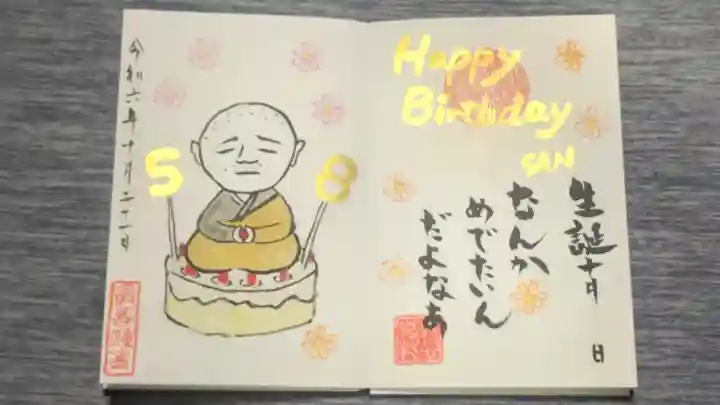 令和六年十月二十一日
5 8
Happy
Birthday
SAN
生誕十月 日
なんか
めでたいん
だよなあ